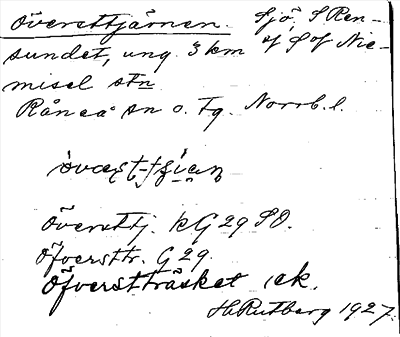 Översttjärnen. Sjö, S Ren-
sundet, ung. 3 km
misel stn
Råneå sn o. Tg. Norrb. l.
Översttj. kG 29 SO.
Öfversttr. G 29.
Öfverstträsket ek.
H. Rutberg 1927.